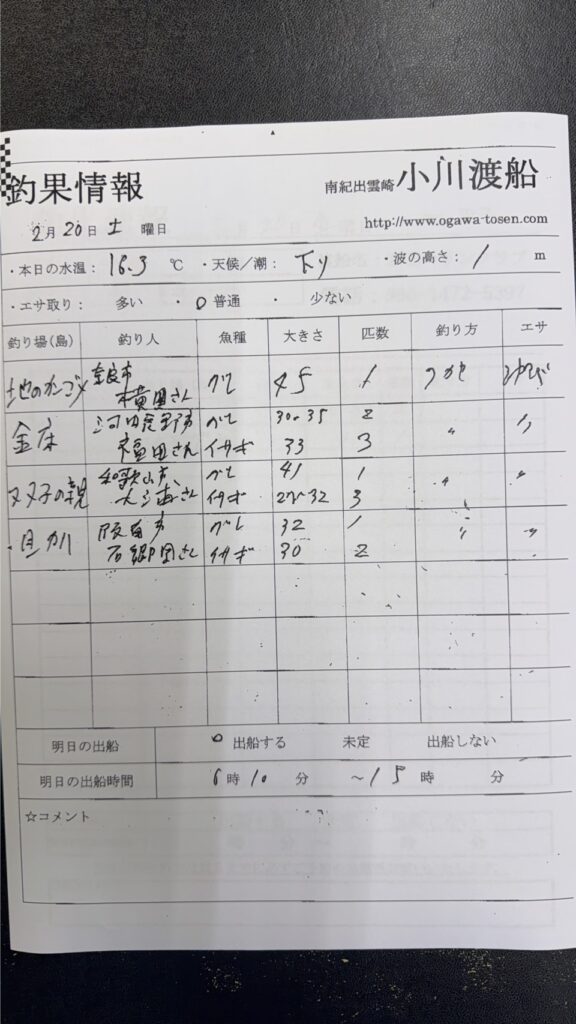 釣果情報
南紀出雲崎 小川渡船
2月20日 土 曜日
http://www.ogawa-tosen.com
・本日の水温： 16.3 ℃ ・天候／潮： 下り ・波の高さ： 1 m
・エサ取り： 多い ・ 〇 普通 ・ 少ない
釣り場(島) 釣り人 魚種 大きさ 匹数 釣り方 エサ
奈良市
地の 横田さん グレ 45 1 フカセ
河内長野市 グレ 30.35 2
金床 福田さん イサギ 33 3 〃 〃
和歌山市 グレ 41 1
ヌヌ子の親 さん イサギ 27〜32 3 〃 〃
グレ 32 1
さん イサギ 30 2 〃 〃
明日の出船 〇 出船する 未定 出船しない
明日の出船時間 6時10分 〜15時 分
☆コメント